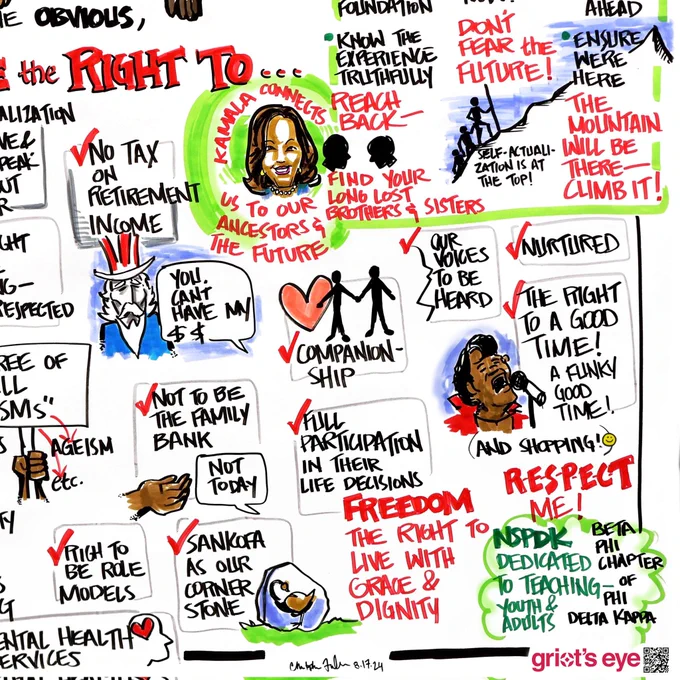 E OBVIOUS,
E the RIGHT TO...
ALIZATION
VE &
PEAK
UT
R
NO TAX
ON
RETIREMENT
INCOME
YOU
CAN'T
HAVE MY
$ $
KAMALA CONNECTS
US TO OUR
ANCESTORS &
THE FUTURE
FOUNDATION
KNOW THE
EXPERIENCE
TRUTHFULLY
REACH
BACK—
FIND YOUR
LONG LOST
BROTHERS & SISTERS
DON'T
FEAR the
FUTURE!
SELF-ACTUALI-
ZATION IS AT
THE TOP!
AHEAD
ENSURE
WE'RE
HERE
THE
MOUNTAIN
WILL BE
THERE—
CLIMB IT!
GHT
NG—
RESPECTED
REE OF
LL
"SMs"
AGEISM
etc.
COMPANION-
SHIP
OUR
VOICES
TO BE
HEARD
NURTURED
THE RIGHT
TO A GOOD
TIME!
A FUNKY
GOOD
TIME!
AND SHOPPING!
NOT TO BE
THE FAMILY
BANK
NOT
TODAY
FULL
PARTICIPATION
IN THEIR
LIFE DECISIONS
RIGH TO
BE ROLE
MODELS
SANKOFA
AS OUR
CORNER
STONE
FREEDOM
THE RIGHT TO
LIVE WITH
GRACE &
DIGNITY
RESPECT
ME!
NSPDK
DEDICATED
TO TEACHING—
YOUTH &
ADULTS
BETA
PHI
CHAPTER
OF
PHI
DELTA KAPPA
ENTAL HEALTH
SERVICES
8.17.24
griot's eye